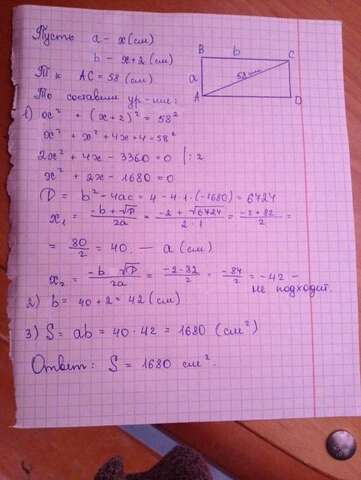 Пусть a - x (см)
b - x+2 (см)
Т.к AC = 58 (см)
То составим ур-ние:
B b C
a 58 см
A D
1) x² + (x+2)² = 58²
x² + x² + 4x + 4 - 58²
2x² + 4x - 3360 = 0 | : 2
x² + 2x - 1680 = 0
D = b² - 4ac = 4 - 4·1·(-1680) = 6724
x₁ = (-b + √D)/2a = (-2 + √6724)/(2·1) = (-2+82)/2 =
= 80/2 = 40. — a (см)
x₂ = (-b √D)/2a = (-2-82)/2 - -84/2 = -42 -
не подходит.
2) b = 40 + 2 = 42 (см)
3) S = ab = 40 · 42 = 1680 (см²)
Ответ: S = 1680 см².